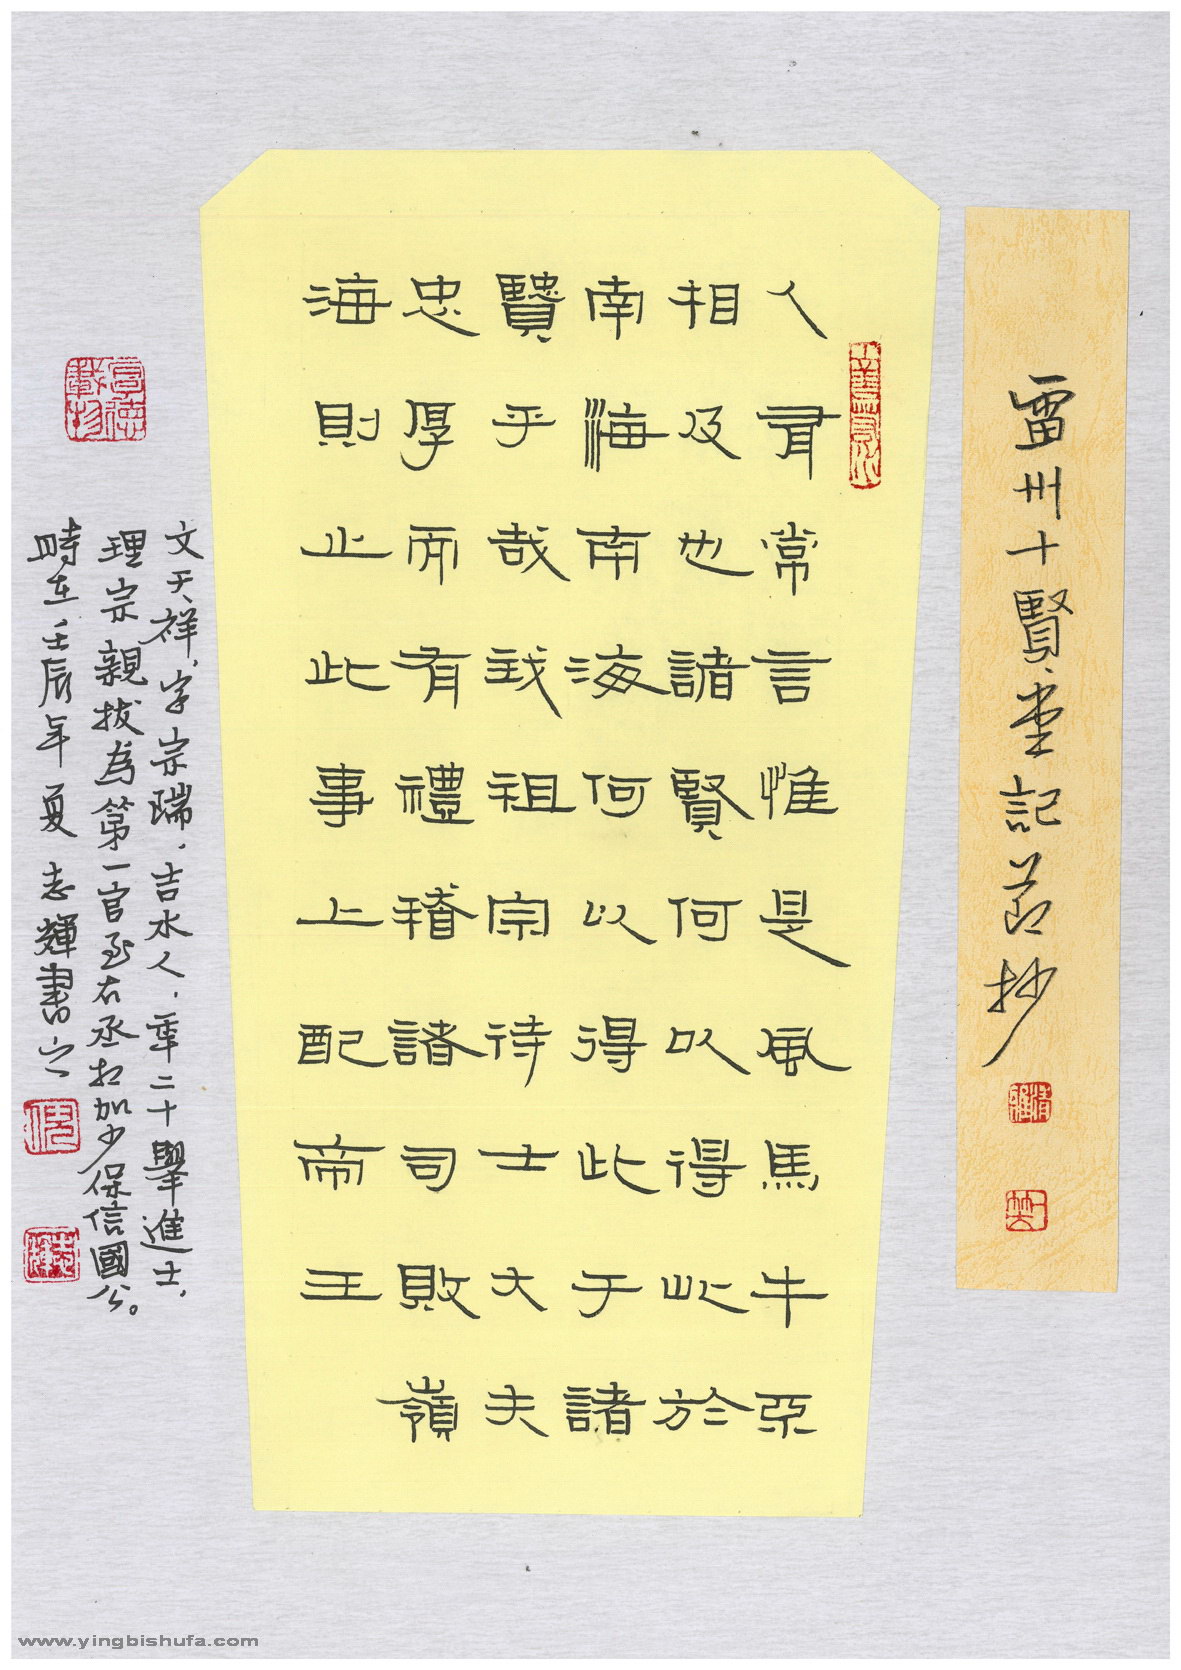 雷州十賢堂記节抄
人有常言惟是風馬牛亞
相及也諸賢何以得此於
南海南海何以得此于諸
賢乎哉我祖宗待士大夫
忠厚而有禮稽諸司敗嶺
海則止此事上配帝王
文天祥，字宗瑞，吉水人，年二十舉進士，
理宗親拔為第一官至右丞相加少保信國公。
時在壬辰年夏志輝書之
厚德載物
www.yingbishufa.com